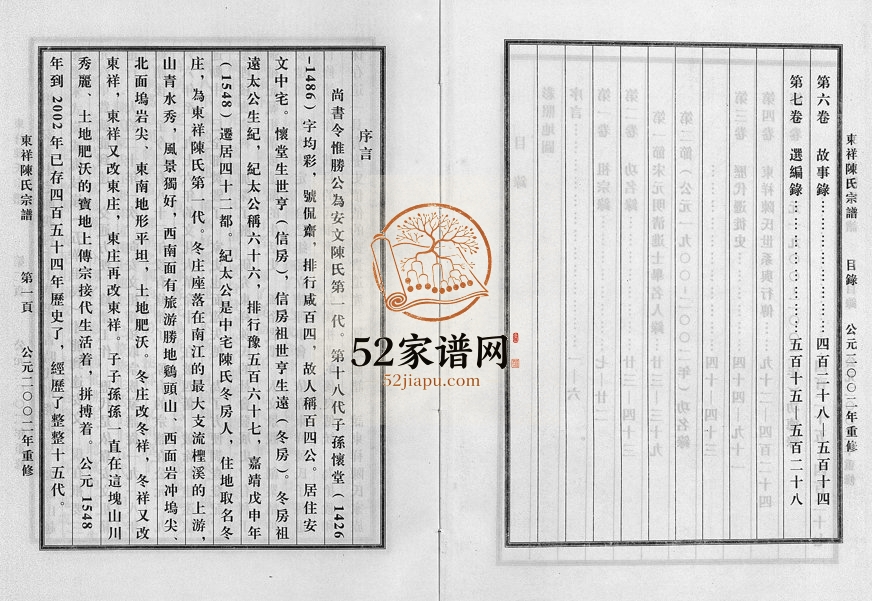 東祥陳氏宗譜 目錄 公元二〇〇二年重修
第六卷 故事錄………………四百二十八—五百十四
第七卷 選編錄………………五百十五—五百二十八
序言
尚書令惟勝公為安文陳氏第一代。第十八代子孫懷堂(1426
-1486)字均彩,號侃齋,排行咸百四,故人稱百四公。居住安
文中宅。懷堂生世亨(信房),信房祖世亨生遠(冬房)。冬房祖
遠太公生紀,紀太公稱六十六,排行豫五百六十七,嘉靖戊申年
(1548)遷居四十二都。紀太公是中宅陳氏冬房人,住地取名冬
庄,為東祥陳氏第一代。冬庄座落在南江的最大支流檉溪的上游,
山青水秀,風景獨好,西南面有旅游勝地鷄頭山、西面岩冲塢尖、
北面塢岩尖、東南地形平坦,土地肥沃。冬庄改冬祥,冬祥又改
東祥,東祥又改東庄,東庄再改東祥。子子孫孫一直在這塊山川
秀麗、土地肥沃的寶地上傳宗接代生活着,拼搏着。公元 1548
年到 2002 年已存四百五十四年歷史了,經歷了整整十五代。
東祥陳氏宗譜 第一頁 公元二〇〇二年重修
52家谱网
52jiapu.com